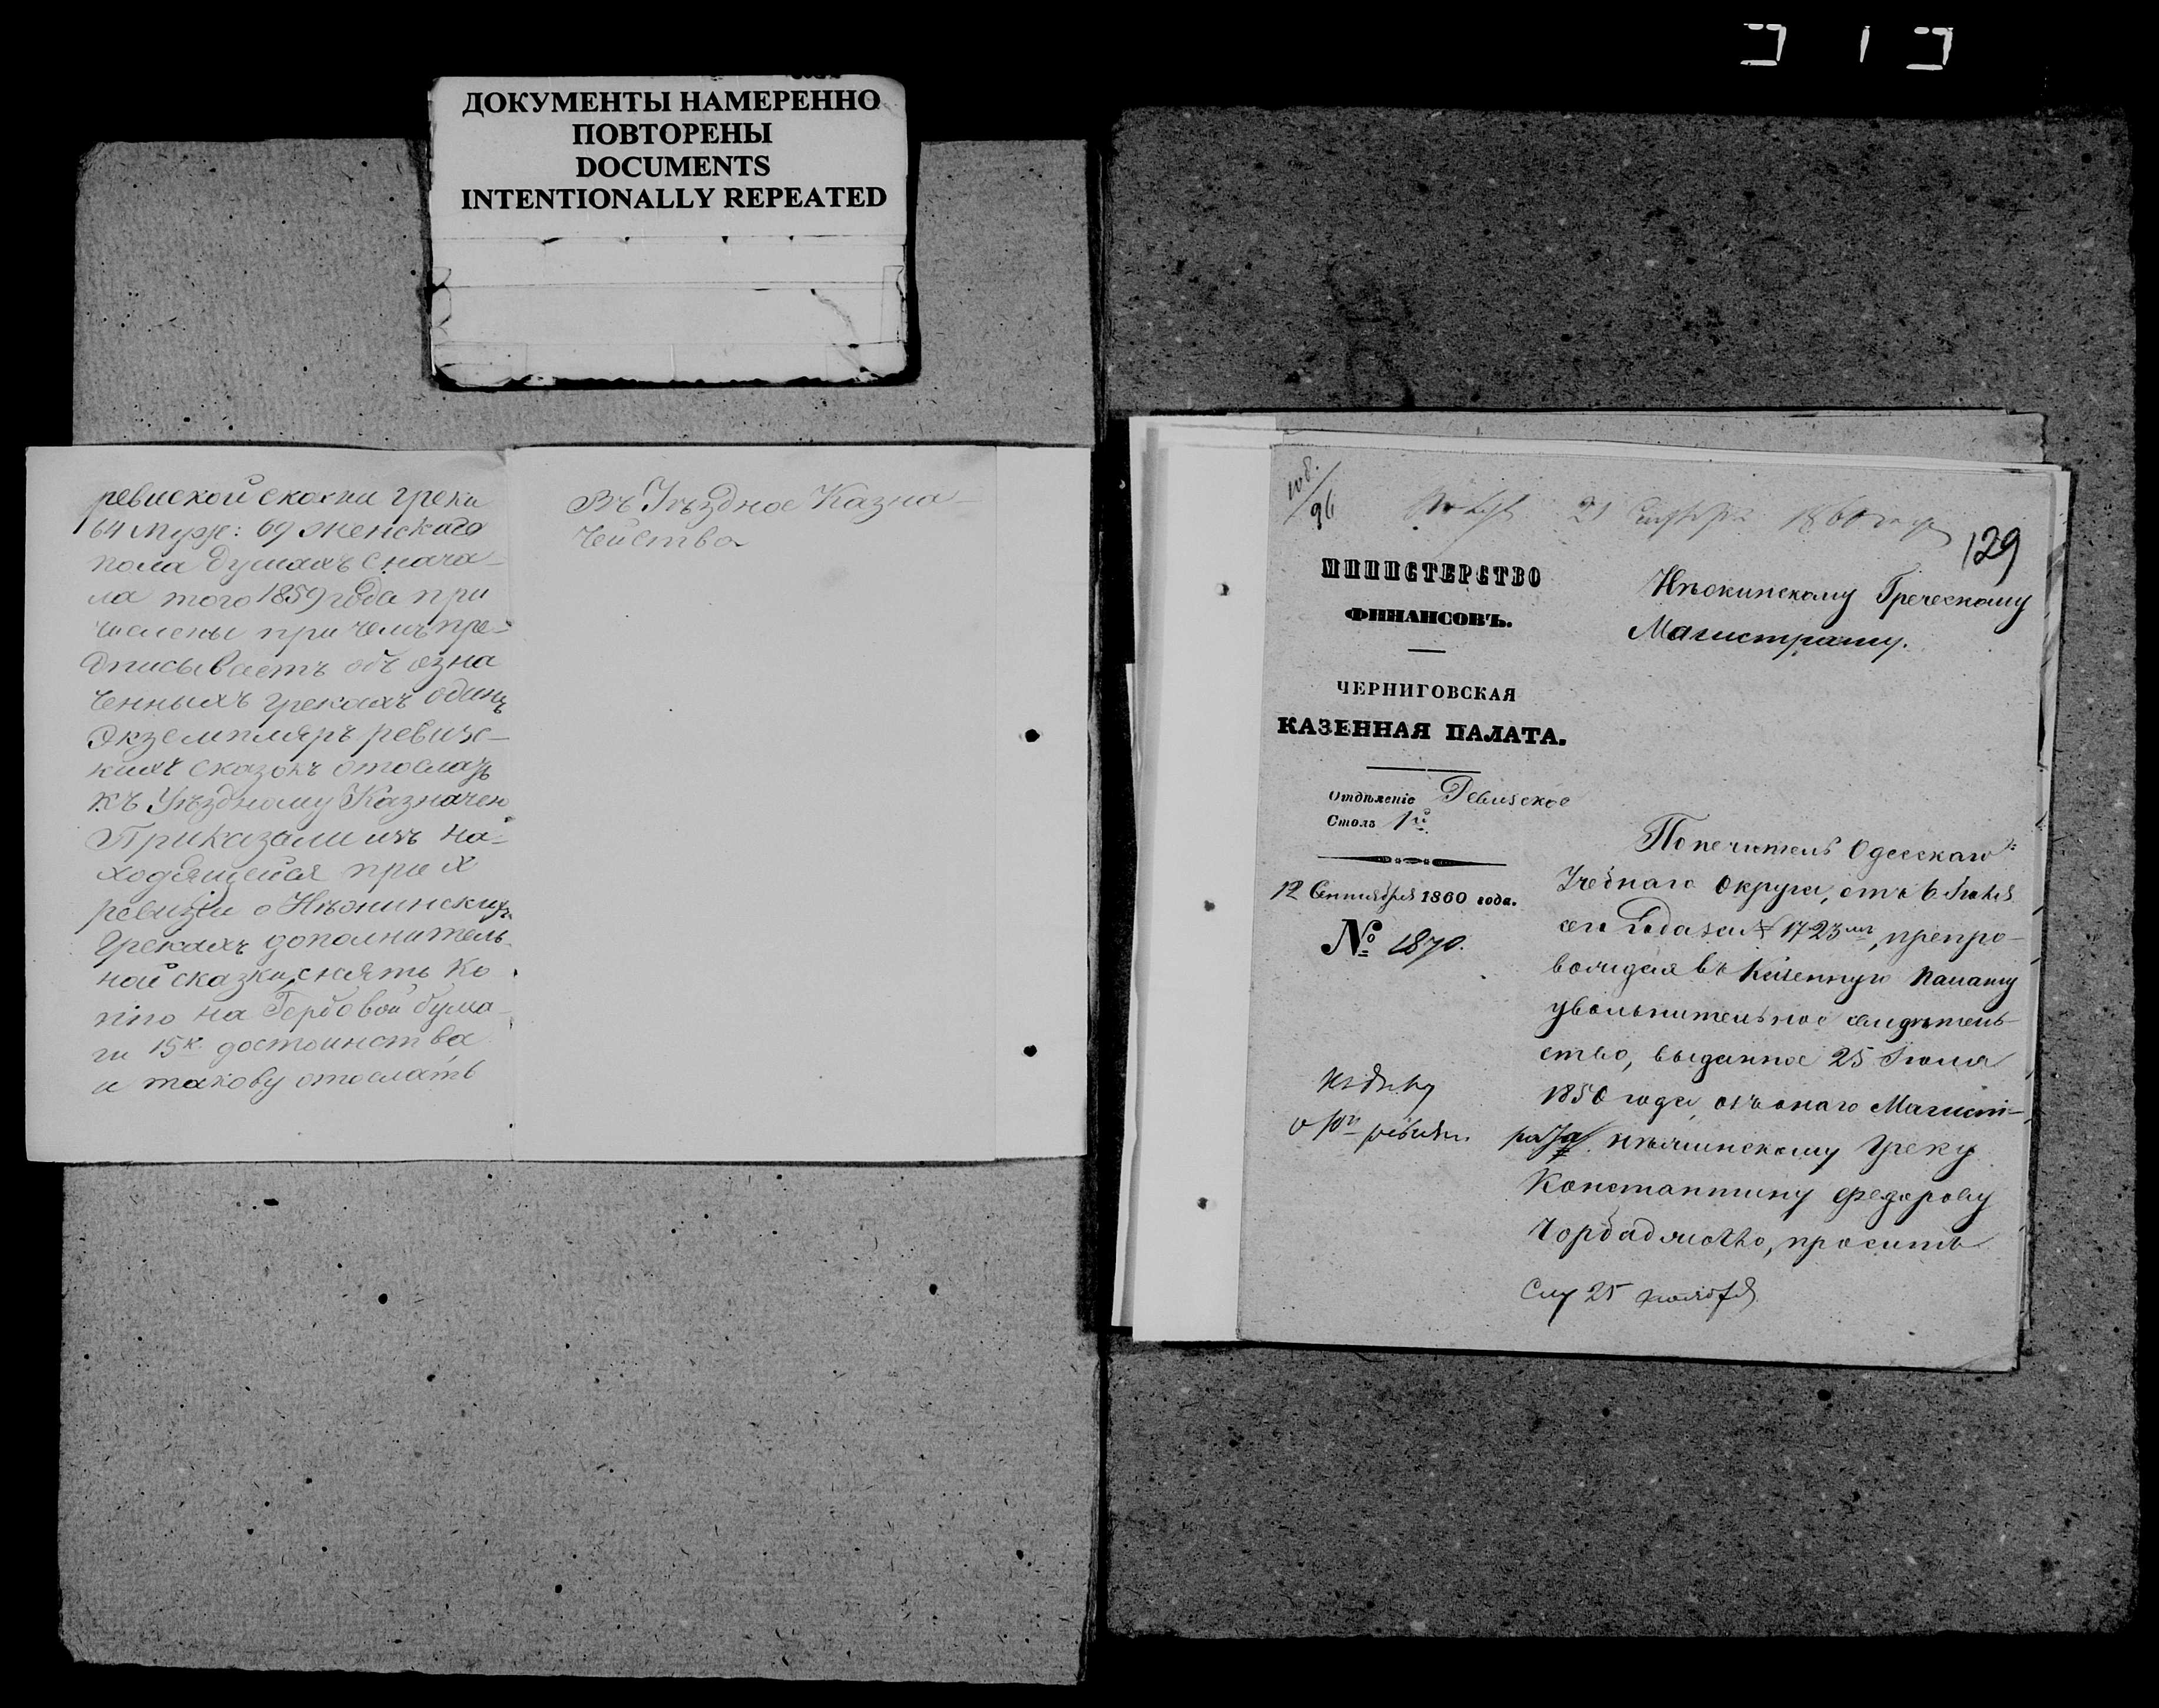 ДОКУМЕНТЫ НАМЕРЕННО
ПОВТОРЕНЫ
DOCUMENTS
INTENTIONALLY REPEATED
ревиской скаски греки
64 муж: 69 женскаго
пола душахъ с нача-
ла того 1859 года при
числены при чемъ пре-
дписываетъ объ озна
ченныхъ грекахъ одинъ
экземпляръ ревизс-
кихъ сказокъ отослать
къ Уѣздному Казначею
Приказали изъ на-
ходящейся при
ревизіи о Нѣжинскихъ
Грекахъ дополнитель-
ной сказки, снять ко
пію на Гербовой бума-
ги 15 к. достоинства
и такову отослать
Въ Уѣздное Казна-
чейство
108.
96
21 1860 года
129
МИНИСТЕРСТВО
ФИНАНСОВЪ.
ЧЕРНИГОВСКАЯ
КАЗЕННАЯ ПАЛАТА.
Отдѣленіе Ревизское
Столъ 1й
12 Сентября 1860 года.
№ 1870.
о 10й ревизіи
Нѣжинскому Греческому
Магистрату.
Попечитель Одесскаго
Учебнаго Округа, отъ 6
сего года за № 1723, препро-
вождая въ Казенную Палату
увольнительное свидѣтель-
ство, выданное 25 Іюля
1850 года, изъ онаго Магист-
рата нѣжинскому Греку
Константину Федорову
просить
25 ноября